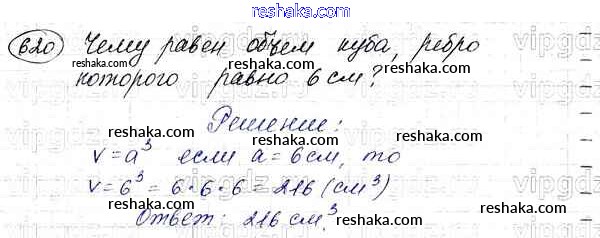 reshaka.com
620 Чему равен объем куба, ребро
reshaka.com reshaka.com
которого равно 6 см?
reshaka.com reshaka.com
Решение:
reshaka.com reshaka.com
V=a³ если a=6см, то
V=6³=6·6·6=216(см³)
reshaka.com reshaka.com
Ответ: 216см³.
reshaka.com